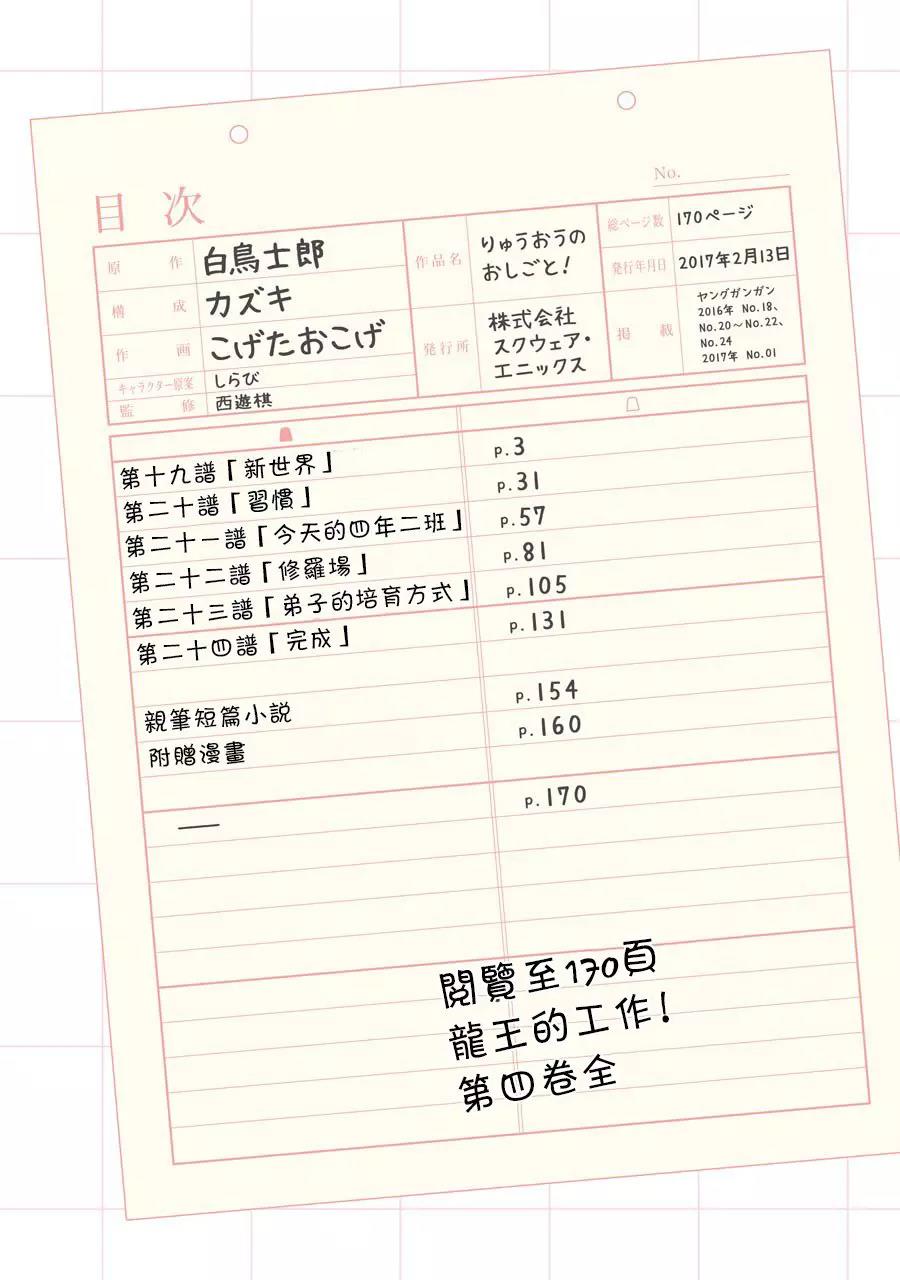 No.
目次
原作 白鳥士郎
構成 カズキ
作画 こげたおこげ
キャラクター原案 しらび
監修 西遊棋
作品名 りゅうおうの
おしごと!
発行所 株式会社
スクウェア・
エニックス
総ページ数 170ページ
発行年月日 2017年2月13日
掲載 ヤングガンガン
2016年 No.18、
No.20~No.22、
No.24
2017年 No.01
第十九譜「新世界」 p.3
第二十譜「習慣」 p.31
第二十一譜「今天的四年二班」 p.57
第二十二譜「修羅場」 p.81
第二十三譜「弟子的培育方式」 p.105
第二十四譜「完成」 p.131
親筆短篇小説 p.154
附贈漫畫 p.160
— p.170
閱覽至170頁
龍王的工作!
第四卷全